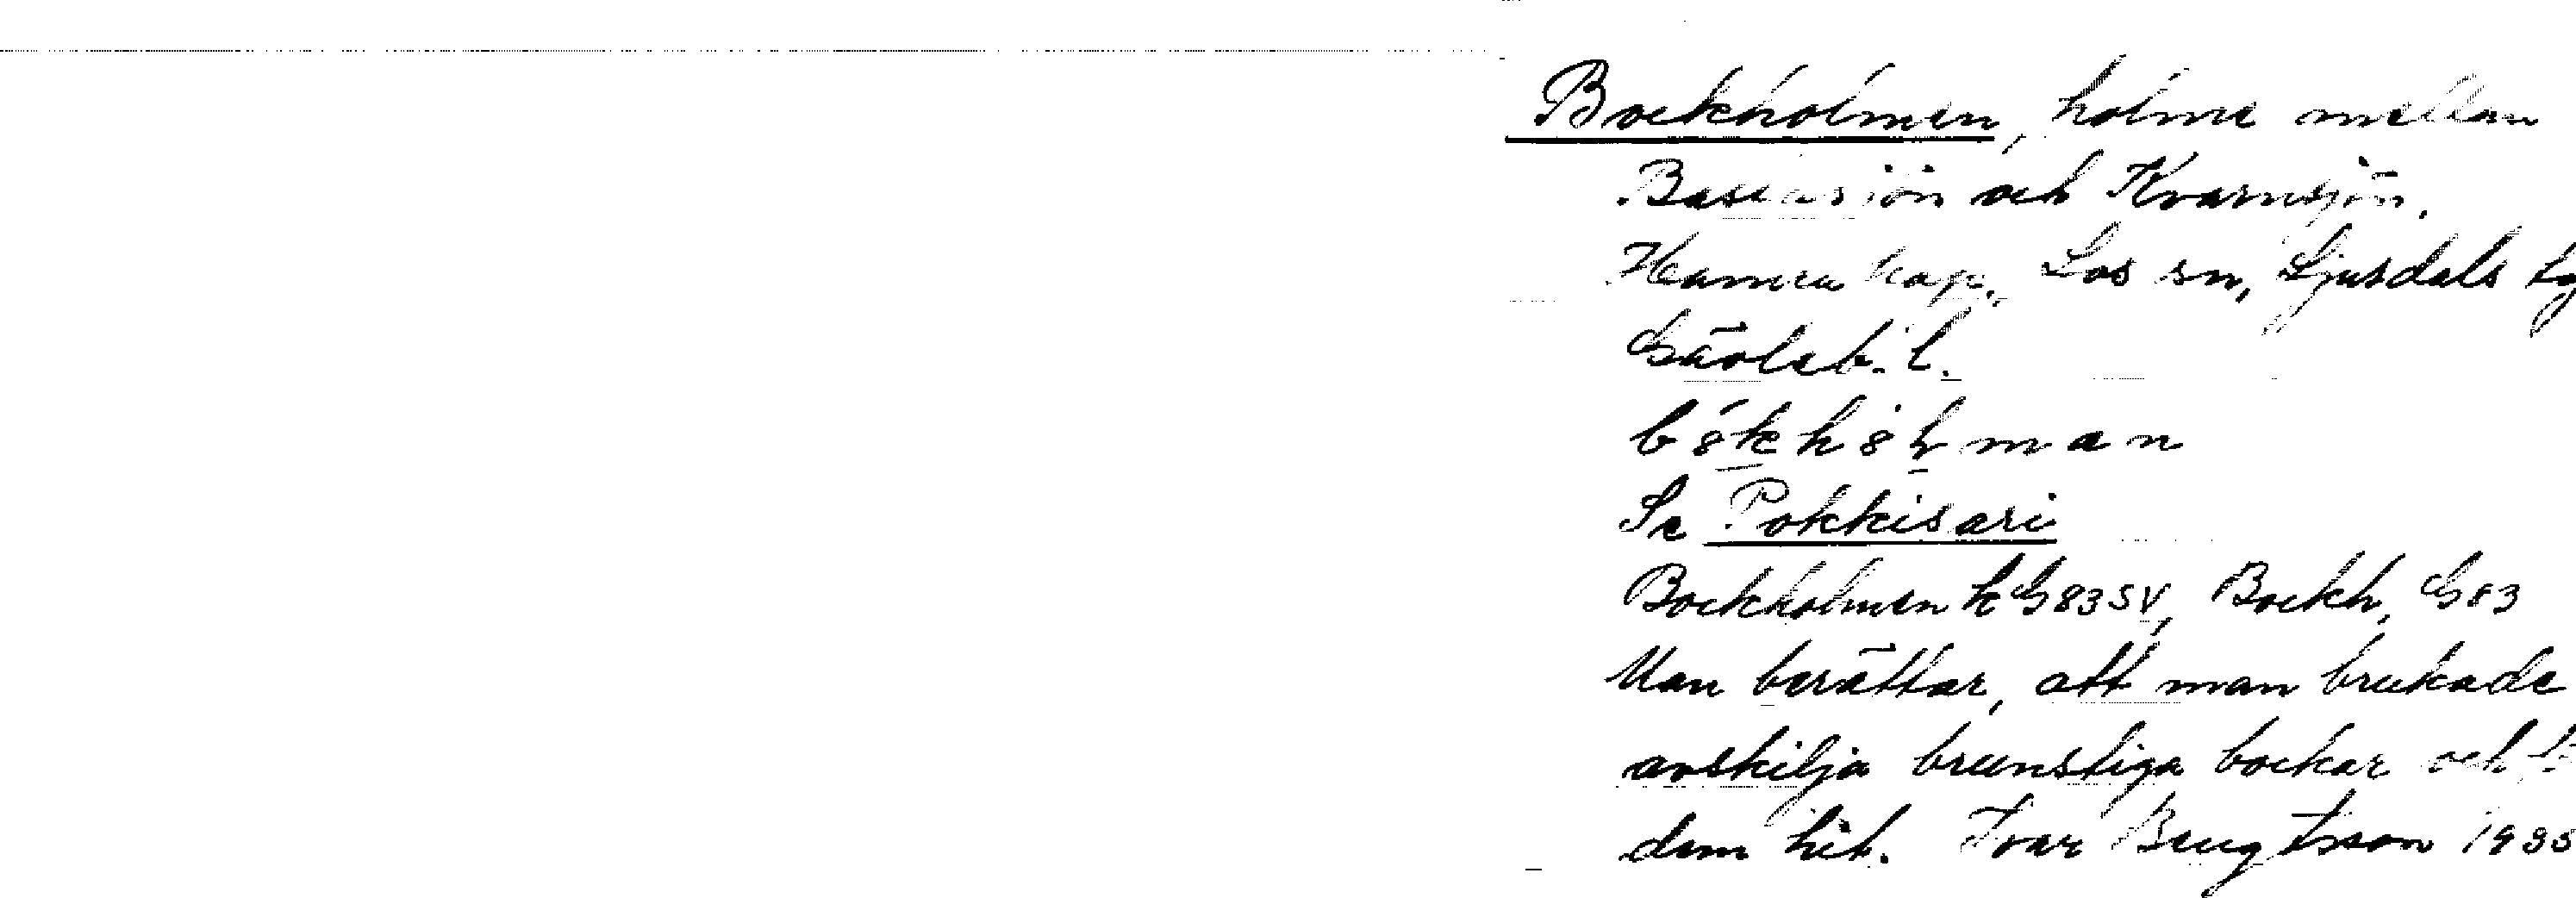 Bockholmen, holme mellan
och Kvarnsjön,
Hamra kap., Los sn, Ljusdals tg
Gävleb. l.
Se Pokkisari
Bockholmen k G 83 SV, Bockh, G 83
Man berättar, att man brukade
avskilja brunstiga bockar och
dem hit. Ivar Bengtsson 1935